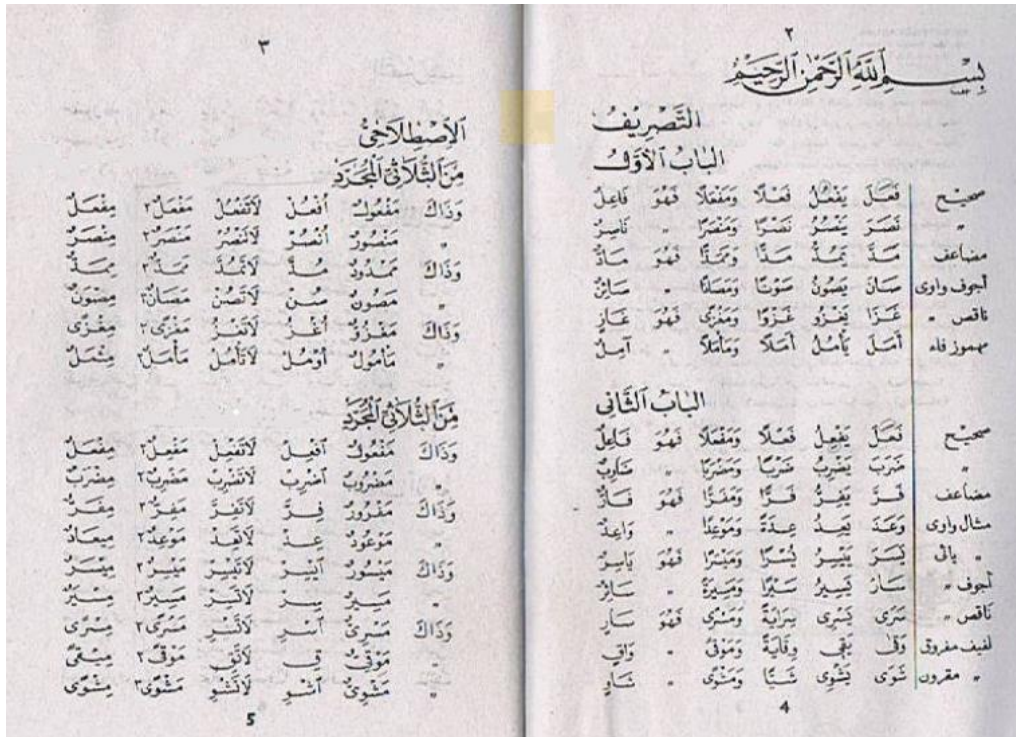 ٢
بِسْمِ اللَّهِ الرَّحْمَٰنِ الرَّحِيْمِ
التَّصْرِيْفُ
البَابُ الْأَوَّلُ
صحيح فَعَلَ يَفْعُلُ فَعْلًا وَمَفْعَلًا فَهُوَ فَاعِلٌ
" نَصَرَ يَنْصُرُ نَصْرًا وَمَنْصَرًا " نَاصِرٌ
مضاعف مَدَّ يَمُدُّ مَدًّا وَمَمَدًّا فَهُوَ مَادٌّ
أجوف واوى صَانَ يَصُوْنُ صَوْنًا وَمَصَانًا " صَائِنٌ
ناقص " غَزَا يَغْزُو غَزْوًا وَمَغْزًى فَهُوَ غَازٍ
مهموز فاء أَمَلَ يَأْمُلُ أَمَلًا وَمَأْمَلًا " آمِلٌ
البَابُ الثَّانِى
صحيح فَعَلَ يَفْعِلُ فَعْلًا وَمَفْعَلًا فَهُوَ فَاعِلٌ
" ضَرَبَ يَضْرِبُ ضَرْبًا وَمَضْرَبًا " ضَارِبٌ
مضاعف فَرَّ يَفِرُّ فَرًّا وَمَفَرًّا فَهُوَ فَارٌّ
مثال واوى وَعَدَ يَعِدُ عِدَةً وَمَوْعِدًا " وَاعِدٌ
" يائى يَسَرَ يَيْسِرُ يُسْرًا وَمَيْسَرًا فَهُوَ يَاسِرٌ
أجوف " سَارَ يَسِيْرُ سَيْرًا وَمَسِيْرَةً " سَائِرٌ
ناقص " سَرَى يَسْرِى سِرَايَةً وَمَسْرًى فَهُوَ سَارٍ
لفيف مفروق وَقَى يَقِى وِقَايَةً وَمَوْقًى " وَاقٍ
" مقرون شَوَى يَشْوِى شَيًّا وَمَشْوًى " شَاوٍ
4
٣
الْاِصْطِلَاحِيُّ
مِنَ الثُّلَاثِيِّ الْمُجَرَّدِ
وَذَاكَ مَفْعُوْلٌ اُفْعُلْ لَاتَفْعُلْ مَفْعَلٌ٢ مِفْعَلٌ
" مَنْصُوْرٌ اُنْصُرْ لَاتَنْصُرْ مَنْصَرٌ٢ مِنْصَرٌ
وَذَاكَ مَمْدُوْدٌ مُدَّ لَاتَمُدَّ مَمَدٌّ٢ مِمَدٌّ
" مَصُوْنٌ صُنْ لَاتَصُنْ مَصَانٌ٢ مِصْوَنٌ
وَذَاكَ مَغْزُوٌّ اُغْزُ لَاتَغْزُ مَغْزًى٢ مِغْزًى
" مَأْمُوْلٌ اُوْمُلْ لَاتَأْمُلْ مَأْمَلٌ٢ مِئْمَلٌ
مِنَ الثُّلَاثِيِّ الْمُجَرَّدِ
وَذَاكَ مَفْعُوْلٌ اِفْعِلْ لَاتَفْعِلْ مَفْعِلٌ٢ مِفْعَلٌ
" مَضْرُوْبٌ اِضْرِبْ لَاتَضْرِبْ مَضْرِبٌ٢ مِضْرَبٌ
وَذَاكَ مَفْرُوْرٌ فِرَّ لَاتَفِرَّ مَفِرٌّ٢ مِفَرٌّ
" مَوْعُوْدٌ عِدْ لَاتَعِدْ مَوْعِدٌ٢ مِيْعَادٌ
وَذَاكَ مَيْسُوْرٌ اِيْسِرْ لَاتَيْسِرْ مَيْسِرٌ٢ مِيْسَرٌ
" مَسِيْرٌ سِرْ لَاتَسِرْ مَسِيْرٌ٢ مِسْيَرٌ
وَذَاكَ مَسْرِيٌّ اِسْرِ لَاتَسْرِ مَسْرًى٢ مِسْرًى
" مَوْقِيٌّ قِ لَاتَقِ مَوْقًى٢ مِيْقًى
" مَشْوِيٌّ اِشْوِ لَاتَشْوِ مَشْوًى٢ مِشْوًى
5